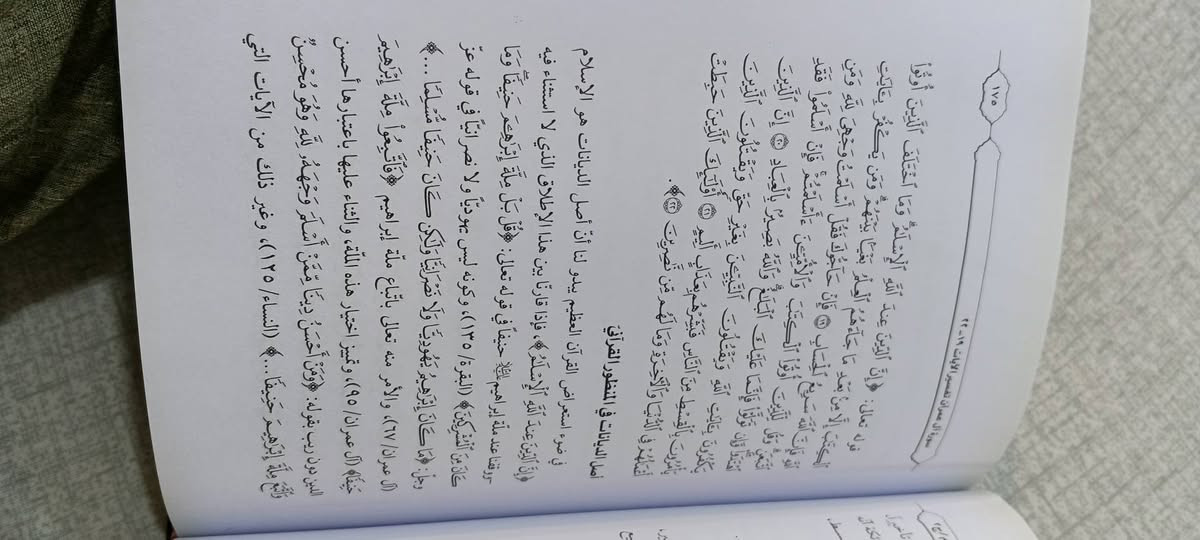 سورة آل عمران تفسير الآيات ١٩ـ٢٢
١٧٥
قوله تعالى: ﴿إِنَّ ٱلدِّينَ عِندَ ٱللَّهِ ٱلْإِسْلَٰمُ ۗ وَمَا ٱخْتَلَفَ ٱلَّذِينَ أُوتُوا۟
ٱلْكِتَٰبَ إِلَّا مِنۢ بَعْدِ مَا جَآءَهُمُ ٱلْعِلْمُ بَغْيًۢا بَيْنَهُمْ ۗ وَمَن يَكْفُرْ بِـَٔايَٰتِ
ٱللَّهِ فَإِنَّ ٱللَّهَ سَرِيعُ ٱلْحِسَابِ ⑲ فَإِنْ حَآجُّوكَ فَقُلْ أَسْلَمْتُ وَجْهِىَ لِلَّهِ وَمَنِ
ٱتَّبَعَنِ ۗ وَقُل لِّلَّذِينَ أُوتُوا۟ ٱلْكِتَٰبَ وَٱلْأُمِّيِّـۧنَ ءَأَسْلَمْتُمْ ۚ فَإِنْ أَسْلَمُوا۟ فَقَدِ
ٱهْتَدَوا۟ ۖ وَّإِن تَوَلَّوْا۟ فَإِنَّمَا عَلَيْكَ ٱلْبَلَٰغُ ۗ وَٱللَّهُ بَصِيرٌۢ بِٱلْعِبَادِ ⑳ إِنَّ ٱلَّذِينَ
يَكْفُرُونَ بِـَٔايَٰتِ ٱللَّهِ وَيَقْتُلُونَ ٱلنَّبِيِّـۧنَ بِغَيْرِ حَقٍّ وَيَقْتُلُونَ ٱلَّذِينَ
يَأْمُرُونَ بِٱلْقِسْطِ مِنَ ٱلنَّاسِ فَبَشِّرْهُم بِعَذَابٍ أَلِيمٍ ㉑ أُو۟لَٰٓئِكَ ٱلَّذِينَ حَبِطَتْ
أَعْمَٰلُهُمْ فِى ٱلدُّنْيَا وَٱلْـَٔاخِرَةِ وَمَا لَهُم مِّن نَّٰصِرِينَ ㉒﴾.
أصل الديانات في المنظور القرآني
في ضوء استعراض القرآن العظيم يبدو لنا أنّ أصل الديانات هو الإسلام
﴿إِنَّ ٱلدِّينَ عِندَ ٱللَّهِ ٱلْإِسْلَٰمُ﴾، فإذا قارنّا بين هذا الإطلاق الذي لا استثناء فيه
ووقفنا عند ملّة إبراهيم عليه السلام حنيفاً في قوله تعالى: ﴿قُلْ بَلْ مِلَّةَ إِبْرَٰهِـۧمَ حَنِيفًا ۖ وَمَا
كَانَ مِنَ ٱلْمُشْرِكِينَ﴾ (البقرة/ ١٣٥)، وكونه ليس يهوديّاً ولا نصرانيّاً في قوله عزّ
وجلّ: ﴿مَا كَانَ إِبْرَٰهِيمُ يَهُودِيًّا وَلَا نَصْرَانِيًّا وَلَٰكِن كَانَ حَنِيفًا مُّسْلِمًا ...﴾
(آل عمران/ ٦٧)، والأمر منه تعالى باتّباع ملّة إبراهيم ﴿فَٱتَّبِعُوا۟ مِلَّةَ إِبْرَٰهِيمَ
حَنِيفًا﴾ (آل عمران/ ٩٥)، وتميز اختيار هذه الملّة، والثناء عليها باعتبارها أحسن
الدين دون ريب بقوله: ﴿وَمَنْ أَحْسَنُ دِينًا مِّمَّنْ أَسْلَمَ وَجْهَهُۥ لِلَّهِ وَهُوَ مُحْسِنٌ
وَٱتَّبَعَ مِلَّةَ إِبْرَٰهِيمَ حَنِيفًا...﴾ (النساء/ ١٢٥)، وغير ذلك من الآيات التي